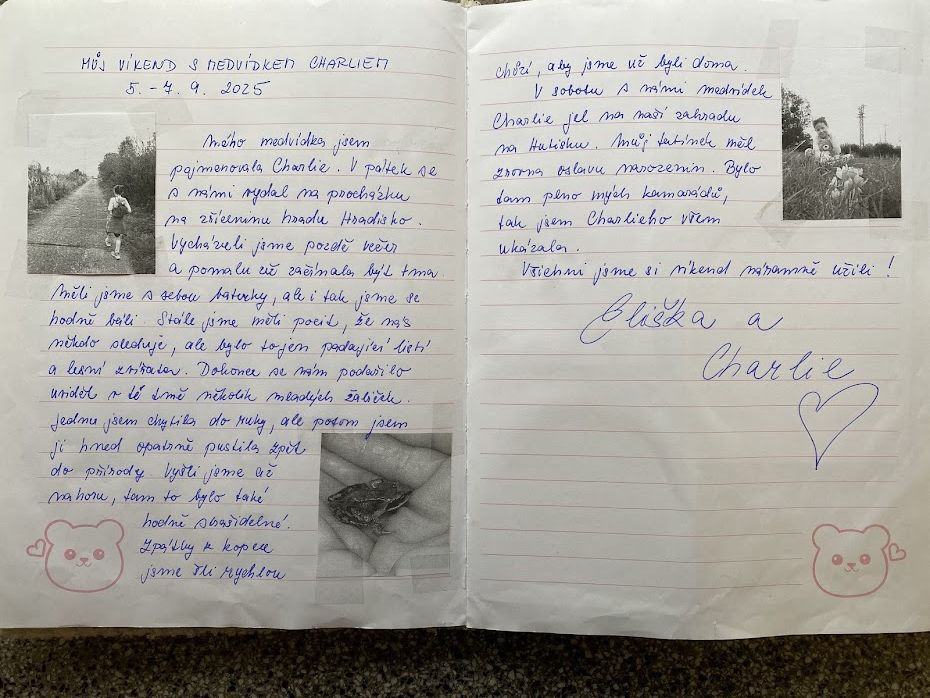 MŮJ VÍKEND S MEDVÍDKEM CHARLIEM
5. - 7. 9. 2025
Mého medvídka jsem
pojmenovala Charlie. V pátek se
s námi vydal na procházku
na zříceninu hradu Hradisko.
Vycházeli jsme pozdě večer
a pomalu už začínala být tma.
Měli jsme s sebou baterky, ale i tak jsme se
hodně báli. Stále jsme měli pocit, že nás
někdo sleduje, ale bylo to jen padající listí
a lesní zvířata. Dokonce se nám podařilo
vidět v té tmě několik mladých žabiček.
Jednu jsem chytila do ruky, ale potom jsem
ji hned opatrně pustila zpět
do přírody. Vyšli jsme až
nahoru, tam to bylo také
hodně strašidelné.
Zpátky k kopce
jsme šli rychlou
chůzí, aby jsme už byli doma.
V sobotu s námi medvídek
Charlie jel na naší zahradu
na Hutisku. Můj tatínek měl
zrovna oslavu narozenin. Bylo
tam plno mých kamarádů,
tak jsem Charlieho všem
ukázala.
Všichni jsme si víkend náramně užili!
Eliška a
Charlie